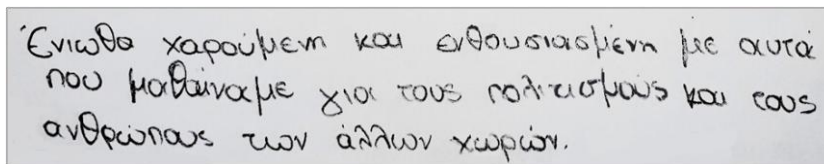 Ένιωθα χαρούμενη και ενθουσιασμένη με αυτά
που μαθαίναμε για τους πολιτισμούς και τους
ανθρώπους των άλλων χωρών.